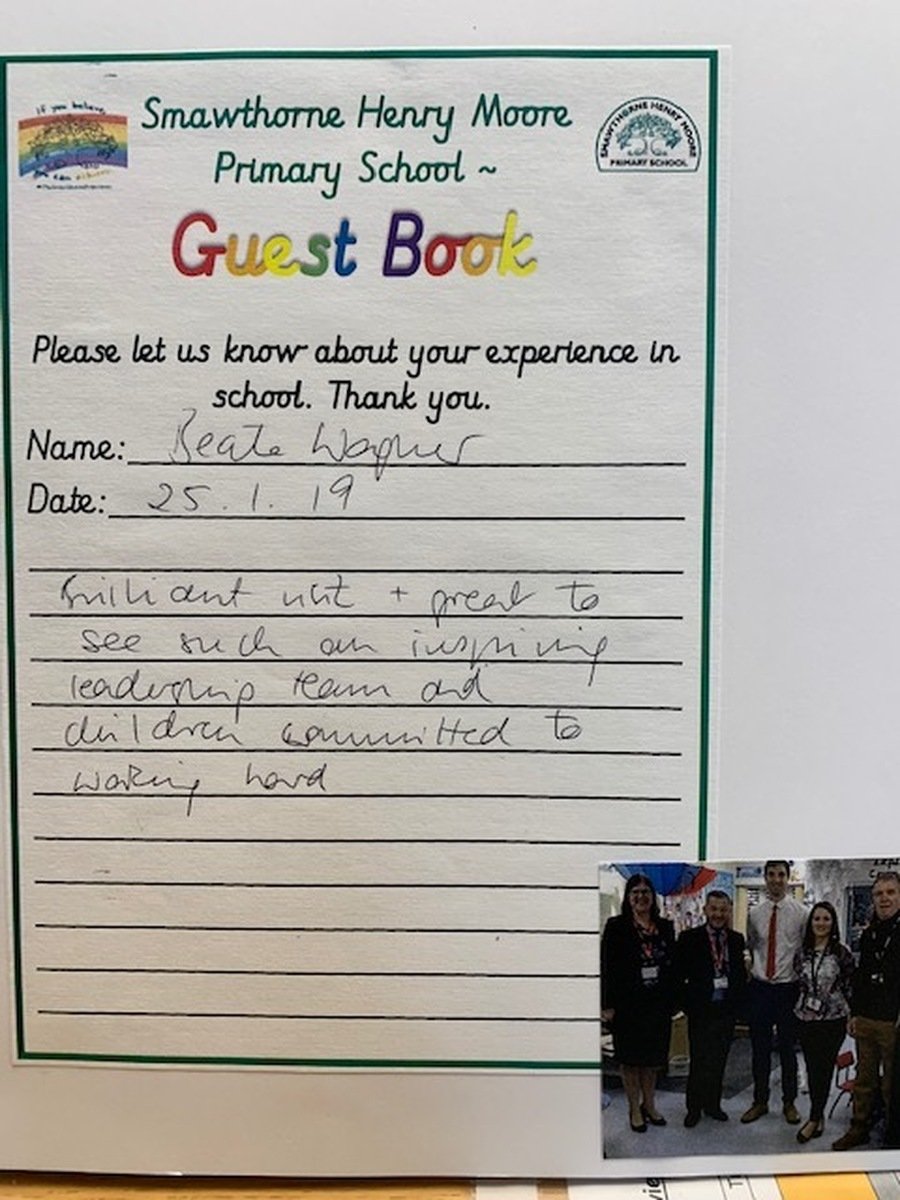 If you believe,
Smawthorne Henry Moore
Primary School ~
SMAWTHORNE HENRY MOORE
PRIMARY SCHOOL
Guest Book
Please let us know about your experience in
school. Thank you.
Name: Beate Wagner
Date: 25.1.19
Brilliant visit + great to
see such an inspiring
leadership team and
children committed to
working hard